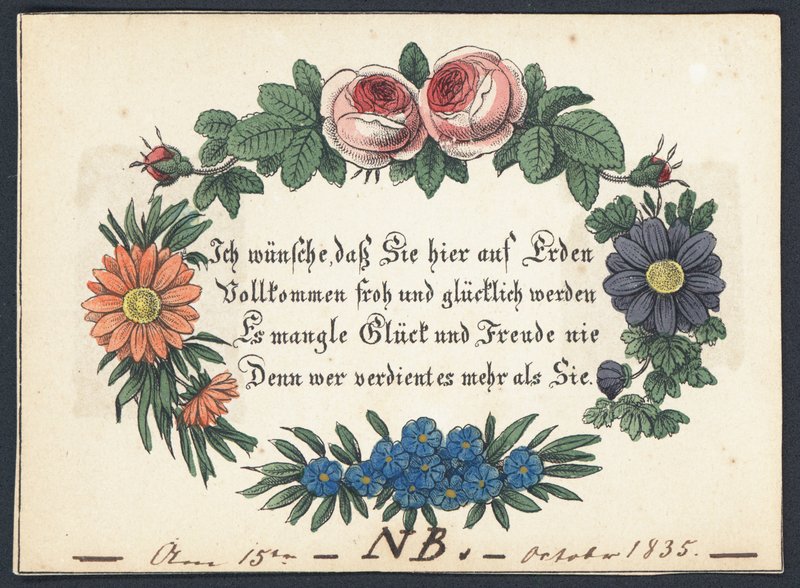 Ich wünsche, daß Sie hier auf Erden
Vollkommen froh und glücklich werden
Es mangle Glück und Freude nie
Denn wer verdient es mehr als Sie.
— Am 15ten — NB. — October 1835. —